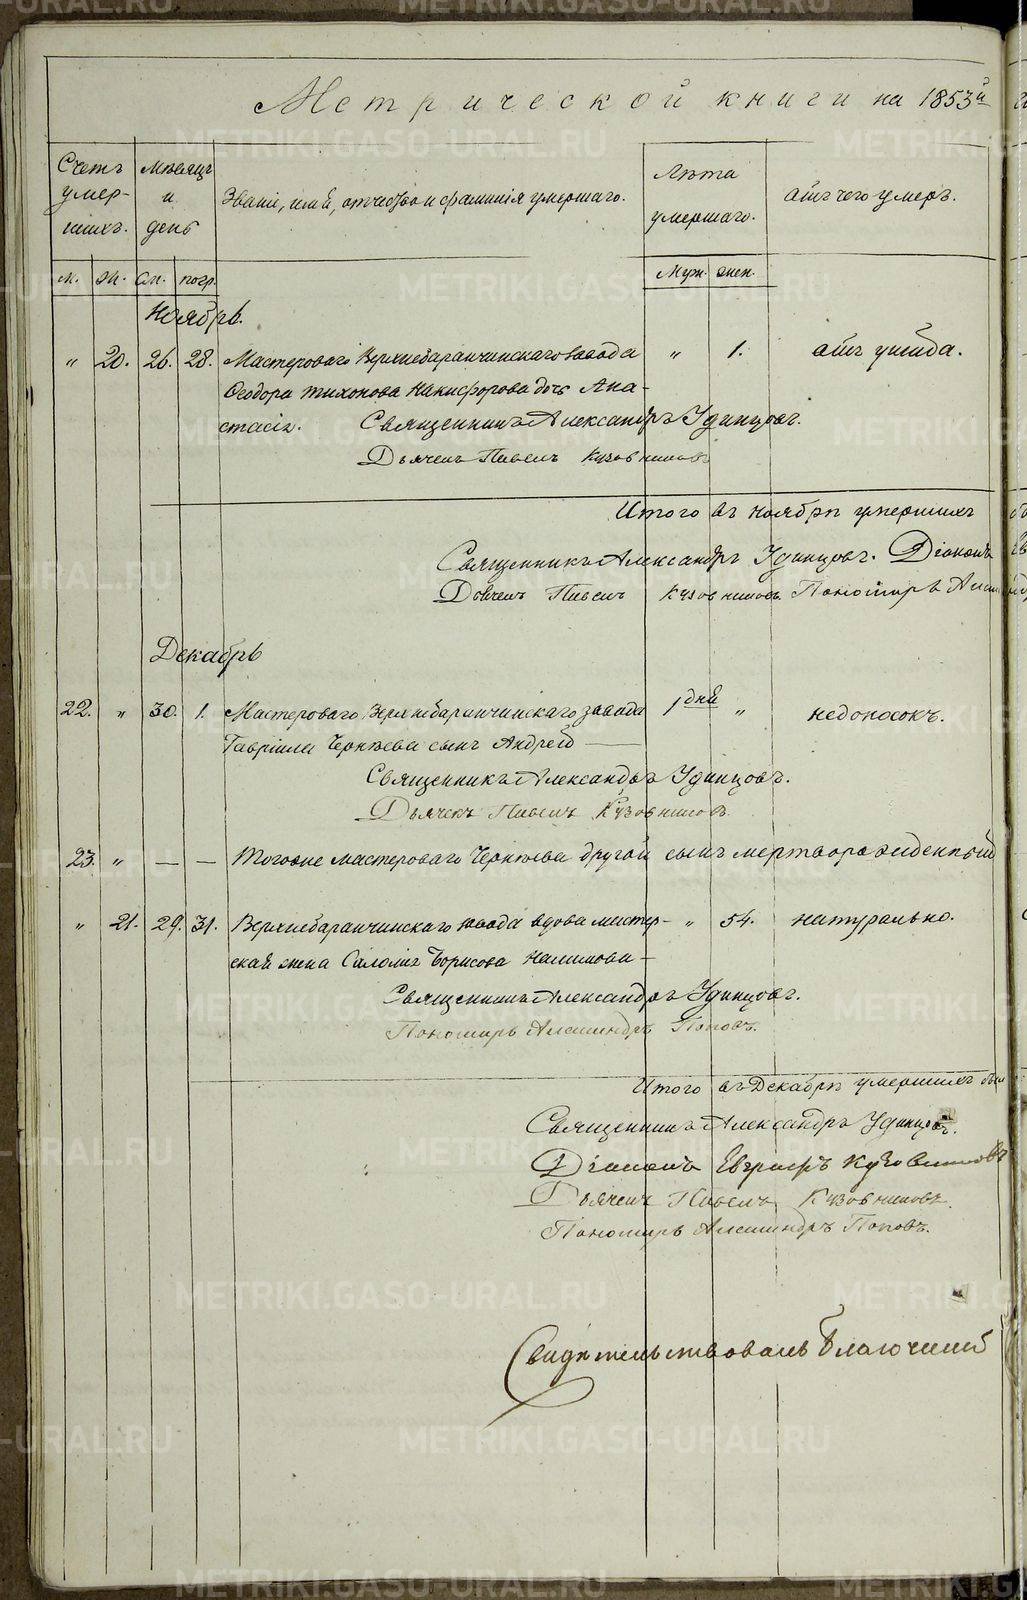 Метрической книги на 1853й
Счетъ умер- шихъ.
Мѣсяцъ и день
Званіе, имя, отчество и фамилія умершаго.
Лѣта умершаго.
Отъ чего умеръ.
м. ж. См. погр. Муж. жен.
Ноябрь.
" 20. 26. 28. Мастероваго Верхнебаранчинскаго завода " 1.
Ѳеодора Тихонова Никифорова дочь Ана-
стасія. Священникъ Александръ Удинцовъ.
Дьячекъ Павелъ Кузовниковъ
Итого въ Ноябрѣ умершихъ
Священникъ Александръ Удинцовъ. Діаконъ
Дьячекъ Павелъ Кузовниковъ Пономарь
Декабрь
22. " 30. 1. Мастероваго Верхнебаранчинскаго завода 1 дня " недоносокъ.
Гавріила сынъ Андрей
Священникъ Александръ Удинцовъ.
Дьячекъ Павелъ Кузовниковъ
23. " — — Тогоже мастероваго другой сынъ мертворожденный
" 21. 29. 31. Верхнебаранчинскаго завода вдова мастер- " 54. натурально.
ская жена Борисова
Священникъ Александръ Удинцовъ.
Пономарь Александръ Поповъ.
Итого въ Декабрѣ умершихъ
Священникъ Александръ Удинцовъ.
Діаконъ Евграфъ Кузовниковъ
Дьячекъ Павелъ Кузовниковъ.
Пономарь Александръ Поповъ.
Свидѣтельствовалъ Благочинный
METRIKI.GASO-URAL.RU